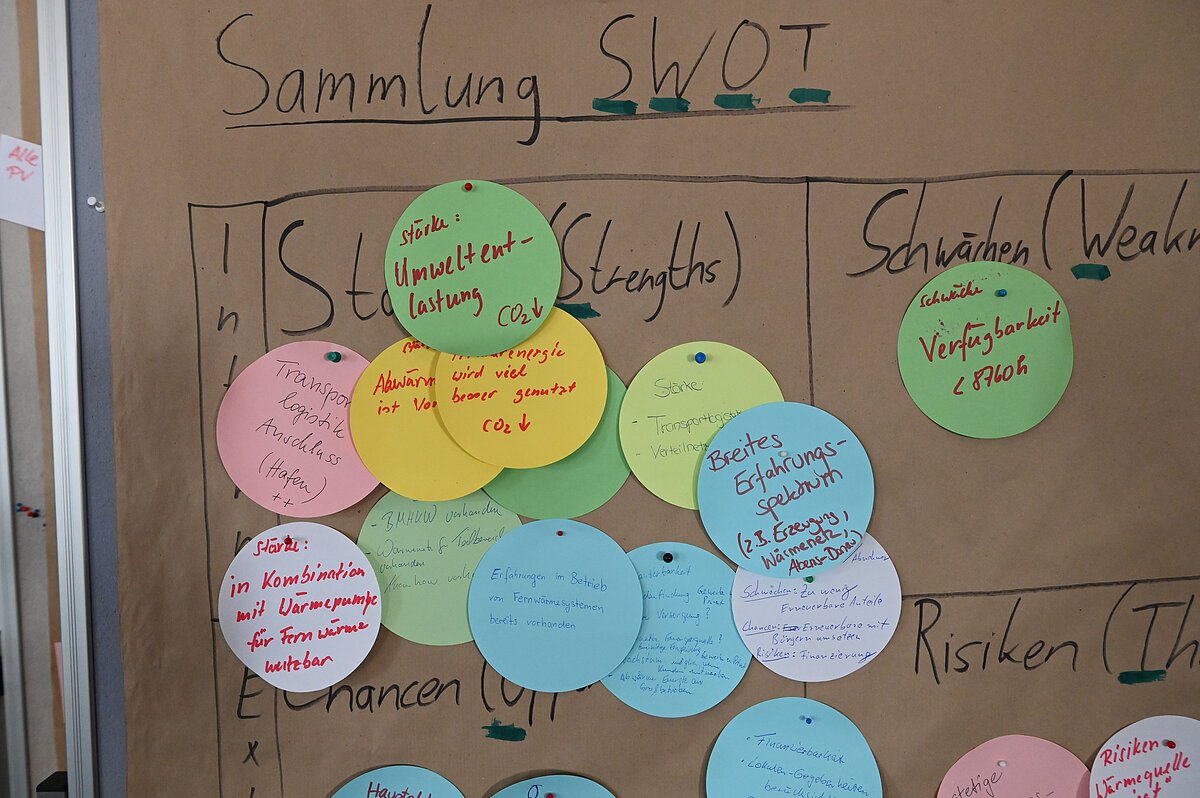 Sammlung SWOT
Alle
PV
(Strengths)
Schwächen (Weakn
stärke:
Umweltent-
lastung
CO2↓
schwäche
Verfügbarkeit
< 8760h
Transpor
logistik
Anschluss
(Hafen)
++
Abwärm
ist Vor
wird viel
besser genutzt
CO2↓
Stärke:
- Transportlogistik
- Verteilnetz
Breites
Erfahrungs-
spektrum
(z.B. Erzeugung,
Wärmenetz,
Abens-Donau)
- BMHKW vorhanden
vorhanden
stärke:
in Kombination
mit Wärmepumpe
für Fernwärme
nutzbar
Erfahrungen im Betrieb
von Fernwärmesystemen
bereits vorhanden
- Abwärme Energie aus
Großbetrieben
Schwächen: Zu wenig
Erneuerbare Anteile
Chancen: Erneuerbare mit
Bürgern umsetzen
Risiken: Finanzierung
Risiken (Th
Chancen (Opp
• Finanzierbarkeit
• Lokalen Gegebenheiten
Risiken
Wärmequelle